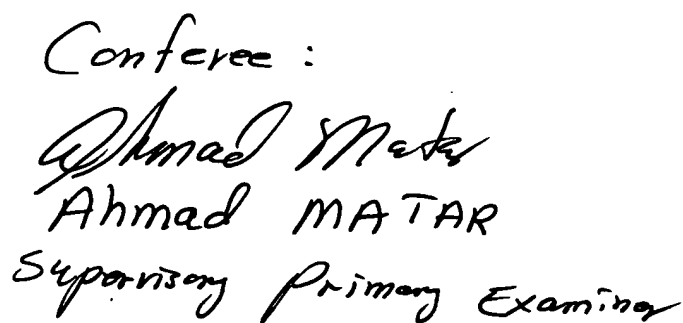 Conferee :
Ahmad Matar
Ahmad MATAR
Supervisory Primary Examiner